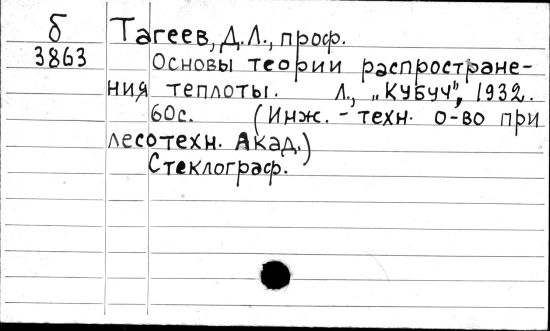 б Тагеев, Д.Л., проф.
3863 Основы теории распростране-
ния теплоты. Л., „КУБУЧ", 1932.
60с. (Инж.-техн. о-во при
лесотехн. Акад.)
Стеклограф.